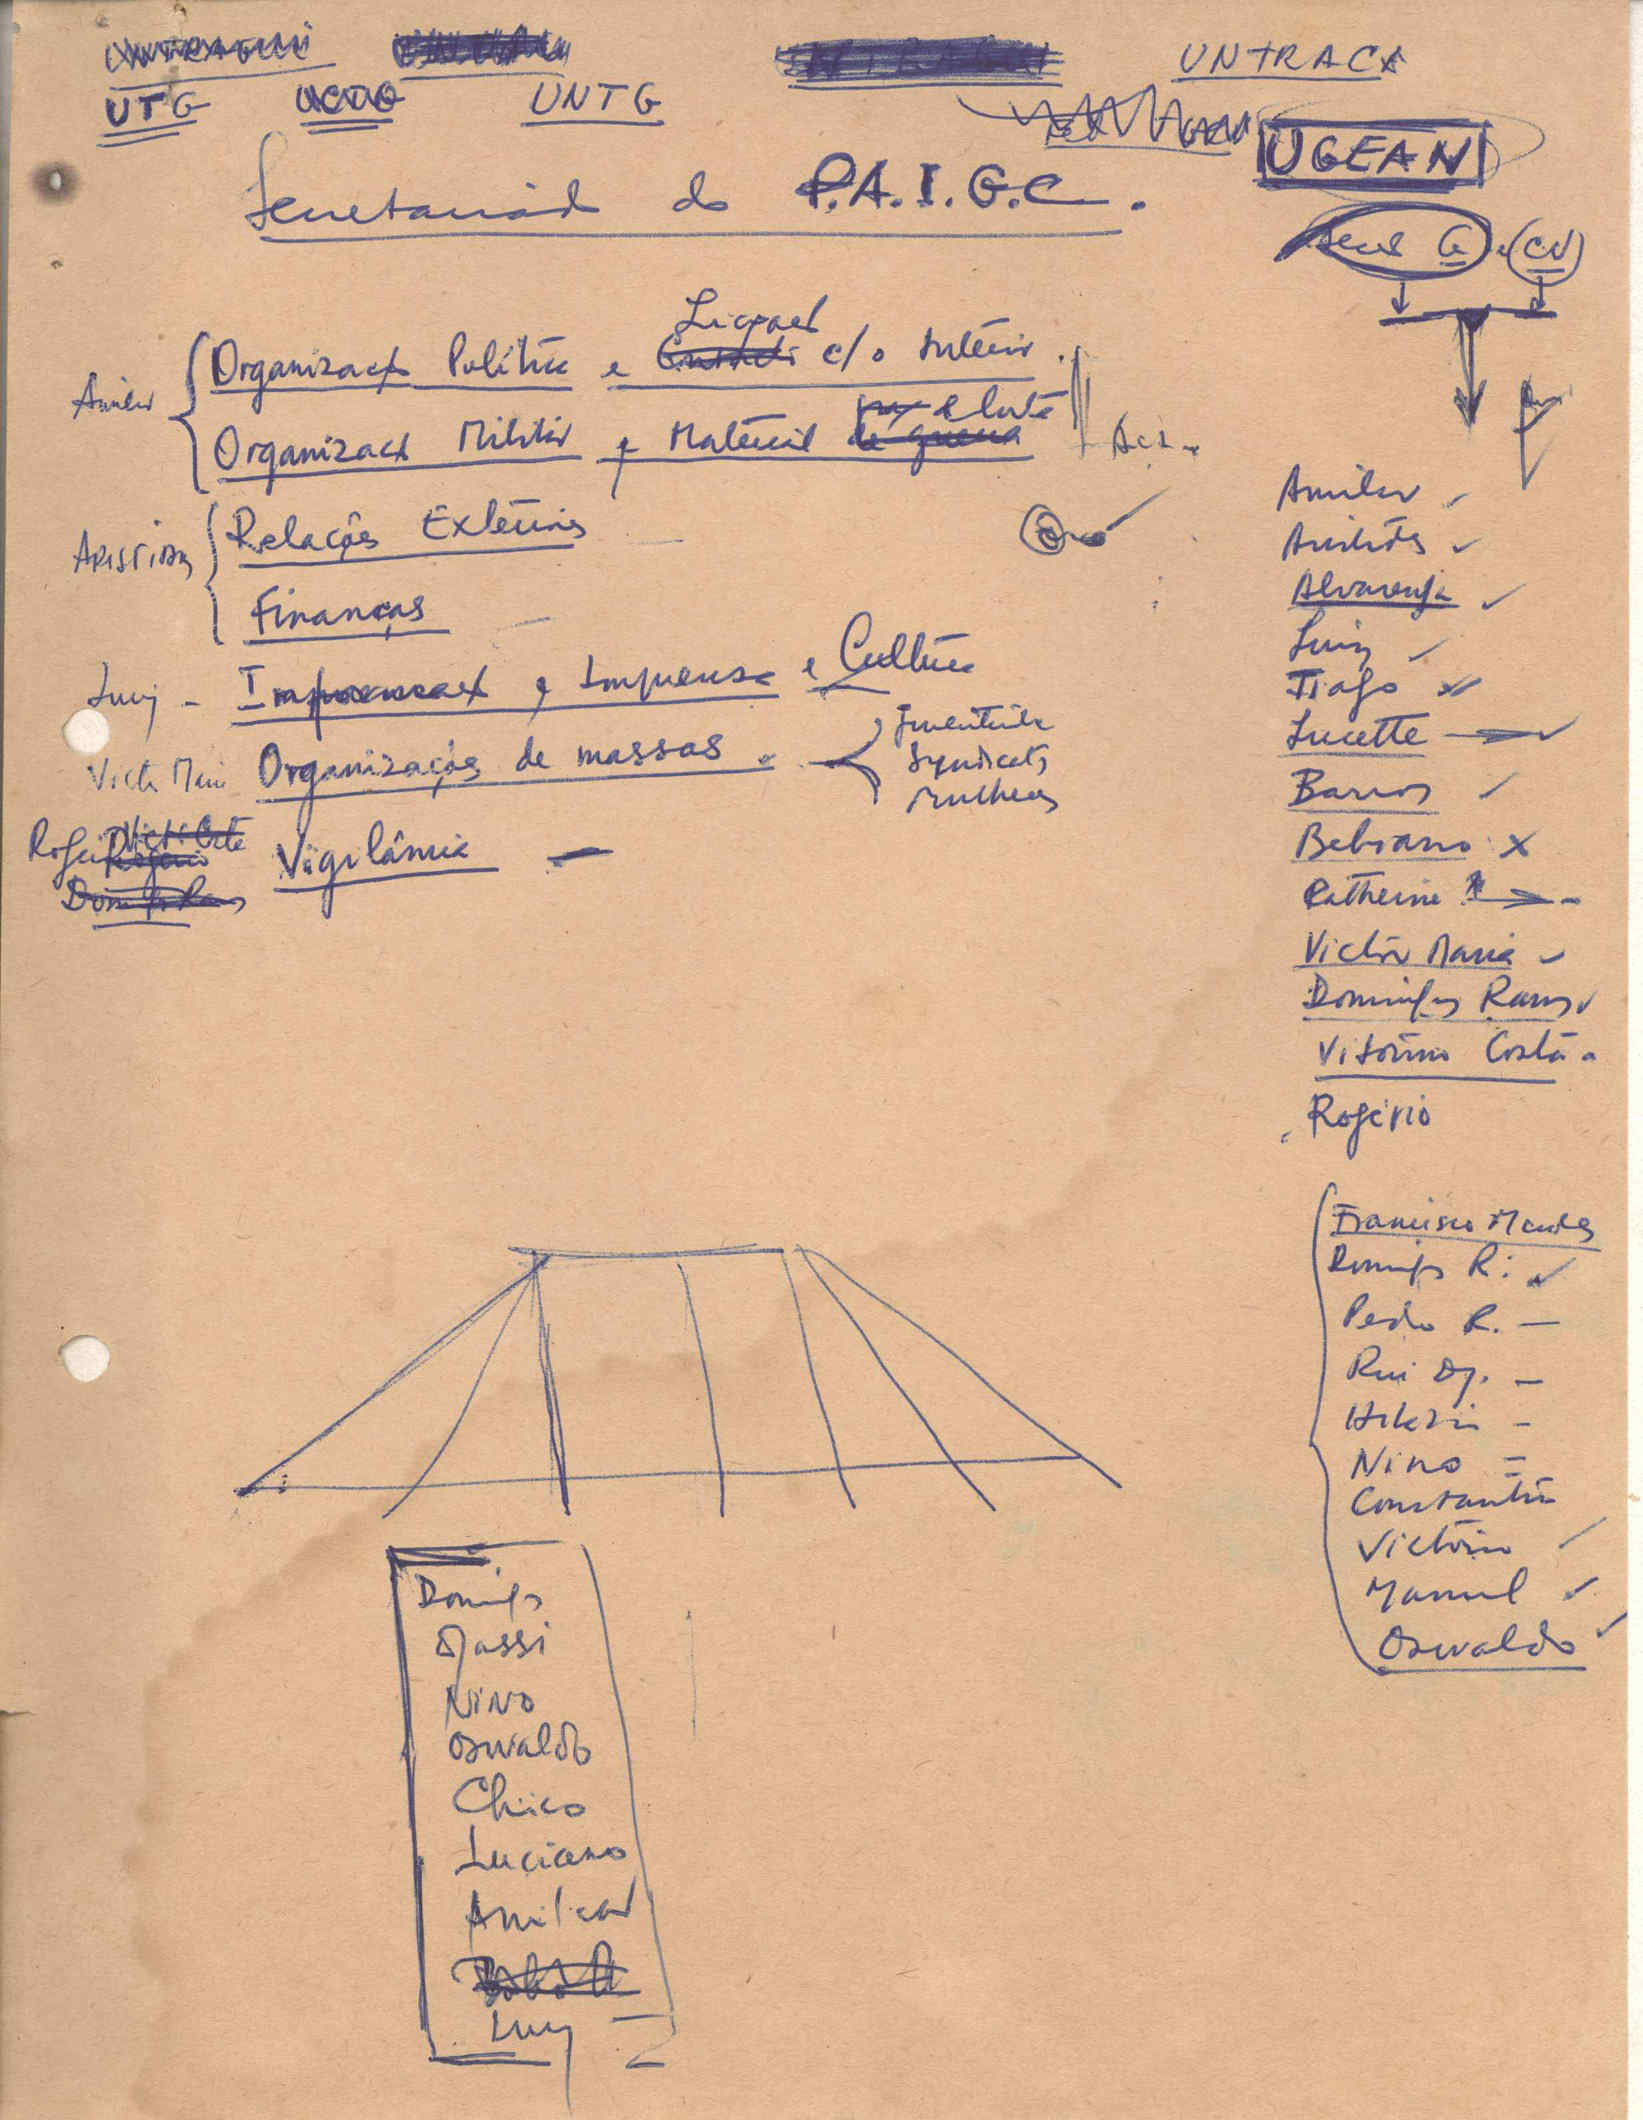 UNTRACG
UTG UNTG
UGEAN
Secretariado do P.A.I.G.C.
G e CV
Ligação
Amilcar Organização Política e c/o Interior.
Organização Militar e Material
Aristides Relações Exteriores
Finanças
Luiz - e Imprensa e Cultura
Victor Maria Organizações de massas.
Juventude
Syndicats
Mulheres
Vigilância -
Amilcar
Aristides
Alvarenga
Luiz
Tiago
Lucette
Barros
Belmano x
Catherine
Victor Maria
Domingos Ramos
Vitorino Costa
Rogério
Francisco Mendes
Domingos R.
Pedro R. -
Rui Dj. -
Nino =
Constantino
Victorino
Manuel
Osvaldo
Domingos
Djassi
Nino
Osvaldo
Chico
Luciano
Amilcar
Luiz -